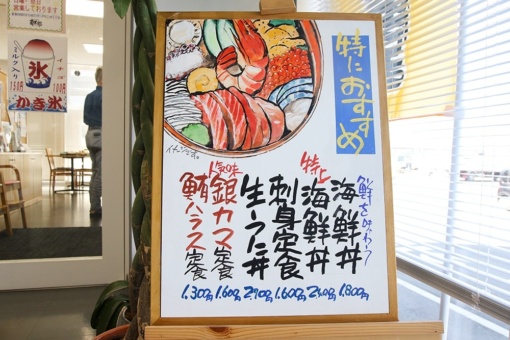 特におすすめ
鮮を味わう
海鮮丼
1,800円
特上
海鮮丼
刺身定食
1,600円
生うに丼
人気味
銀カマ定食
1,600円
鮪ハラス定食
1,300円
イメージです。
氷
イチゴ
ミルク入り
150円
100円
かき氷